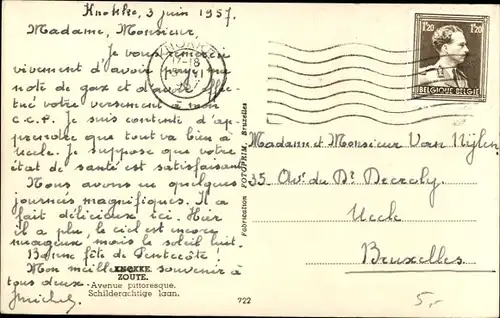 Knokke, 3 juin 1957.
Madame, Monsieur,
Je vous remercie
vivement d'avoir payé ma
note de gaz et d'avoir effec-
tué votre versement à mon
c.c.P. Je suis contente d'ap-
prendre que tout va bien à
Uccle. Je suppose que votre
état de santé est satisfaisant.
Nous avons eu quelques
journées magnifiques. Il a
fait délicieux ici. Hier
il a plu, le ciel est encore
nuageux mais le soleil luit.
Bonne fête de Pentecôte!
Mon meilleur souvenir à
tous deux.
KNOKKE.
ZOUTE.
Avenue pittoresque.
Schilderachtige laan.
Fabrication FOTOPRIM, Bruxelles
722
KNOKKE
17-18
1F20 1F20
BELGIQUE-BELGIE
Madame et Monsieur Van Nijlen
35 Av. du Dr Decroly
Uccle
Bruxelles
5,-